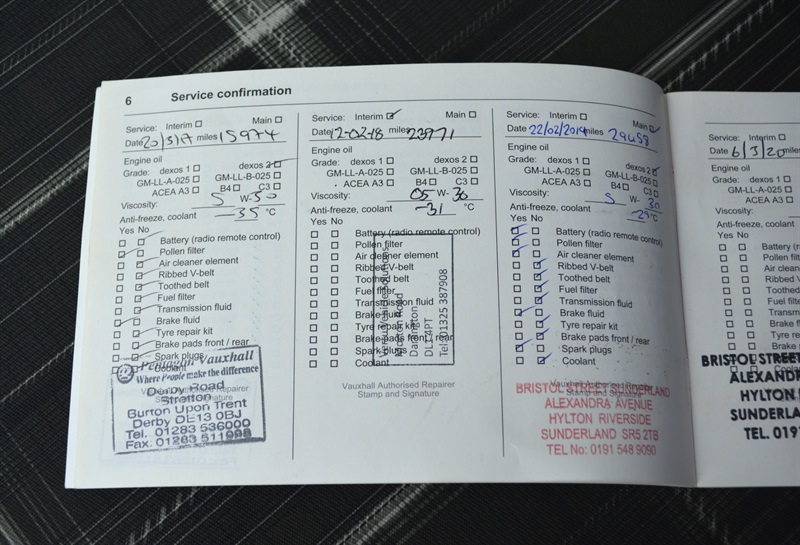 6 Service confirmation
Service: Interim Main
Date 20/3/17 miles 15974
Engine oil
Grade: dexos 1 dexos 2
GM-LL-A-025 GM-LL-B-025
ACEA A3 B4 C3
Viscosity: 5 W- 30
Anti-freeze, coolant -35 °C
Yes No
Battery (radio remote control)
Pollen filter
Air cleaner element
Ribbed V-belt
Toothed belt
Fuel filter
Transmission fluid
Brake fluid
Tyre repair kit
Brake pads front / rear
Spark plugs
Coolant
Vauxhall Authorised Repairer
Pentagon Vauxhall
Where People make the difference
Derby Road
Stretton
Burton Upon Trent
Derby DE13 0BJ
Tel. 01283 536000
Fax. 01283 511998
Service: Interim Main
Date 12-02-18 miles 23771
Engine oil
Grade: dexos 1 dexos 2
GM-LL-A-025 GM-LL-B-025
ACEA A3 B4 C3
Viscosity: 05 W- 30
Anti-freeze, coolant -31 °C
Yes No
Battery (radio remote control)
Pollen filter
Air cleaner element
Ribbed V-belt
Toothed belt
Fuel filter
Transmission fluid
Brake fluid
Tyre repair kit
Brake pads front / rear
Spark plugs
Coolant
Road
Darlington
DL1 4PT
Tel: 01325 387908
Vauxhall Authorised Repairer
Stamp and Signature
Service: Interim Main
Date 22/02/2019 miles 29458
Engine oil
Grade: dexos 1 dexos 2
GM-LL-A-025 GM-LL-B-025
ACEA A3 B4 C3
Viscosity: 5 W- 30
Anti-freeze, coolant -29 °C
Yes No
Battery (radio remote control)
Pollen filter
Air cleaner element
Ribbed V-belt
Toothed belt
Fuel filter
Transmission fluid
Brake fluid
Tyre repair kit
Brake pads front / rear
Spark plugs
Coolant
Vauxhall Authorised Repairer
Stamp and Signature
BRISTOL STREET SUNDERLAND
ALEXANDRA AVENUE
HYLTON RIVERSIDE
SUNDERLAND SR5 2TB
TEL No: 0191 548 9090
Service: Interim
Date 6/3/20 miles
Engine oil
Grade: dexos 1
GM-LL-A-025
ACEA A3
Viscosity:
Anti-freeze, coolant
Yes No
Battery (ra
Pollen filter
Air cleaner
Ribbed V-b
Toothed be
Fuel filter
Transmissi
Brake fluid
Tyre repair
Brake pads
BRISTOL STREET
ALEXAND
HYLTON
SUNDERLA
TEL. 0197